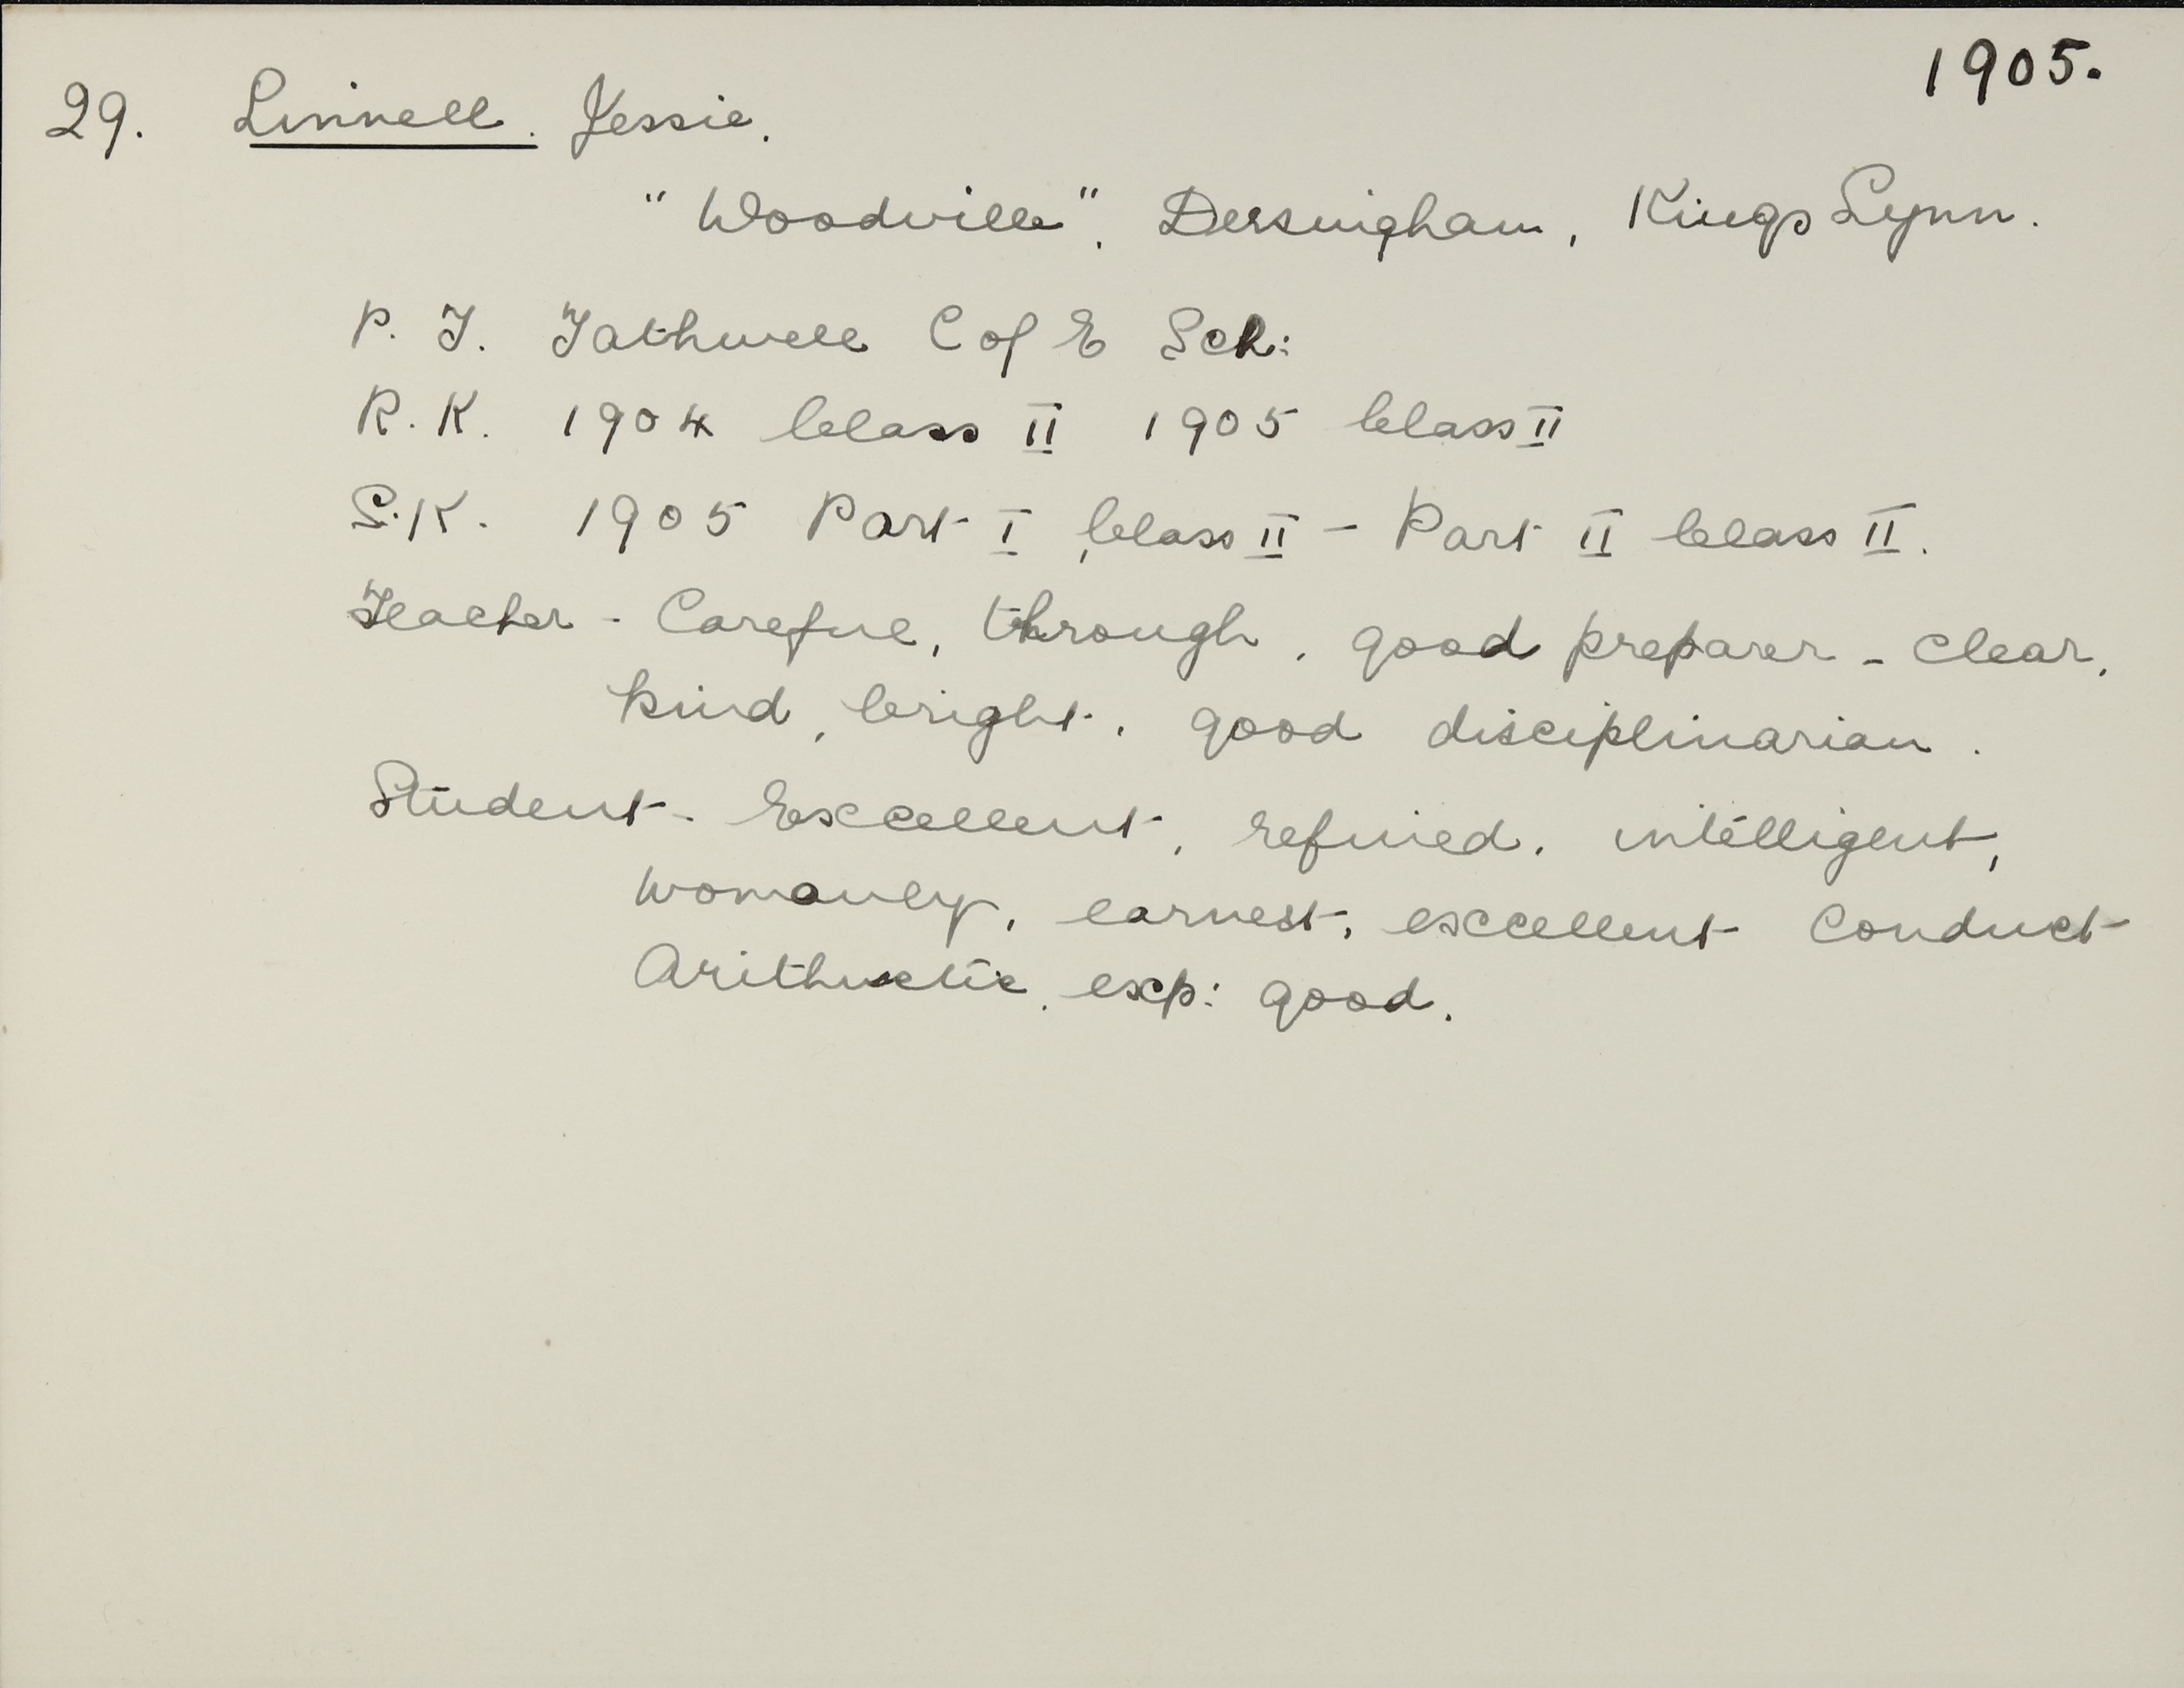 1905.
29. Linnell. Jessie.
"Woodville". Dersingham, Kings Lynn.
P. T. Tathwell C of E Sch:
R.K. 1904 Class II 1905 Class II
S.K. 1905 Part I Class II - Part II Class II.
Teacher - Careful, through, good preparer - clear,
kind, bright, good disciplinarian.
Student - Excellent, refined, intelligent,
womanly, earnest, excellent conduct
Arithmetic. exp: good.